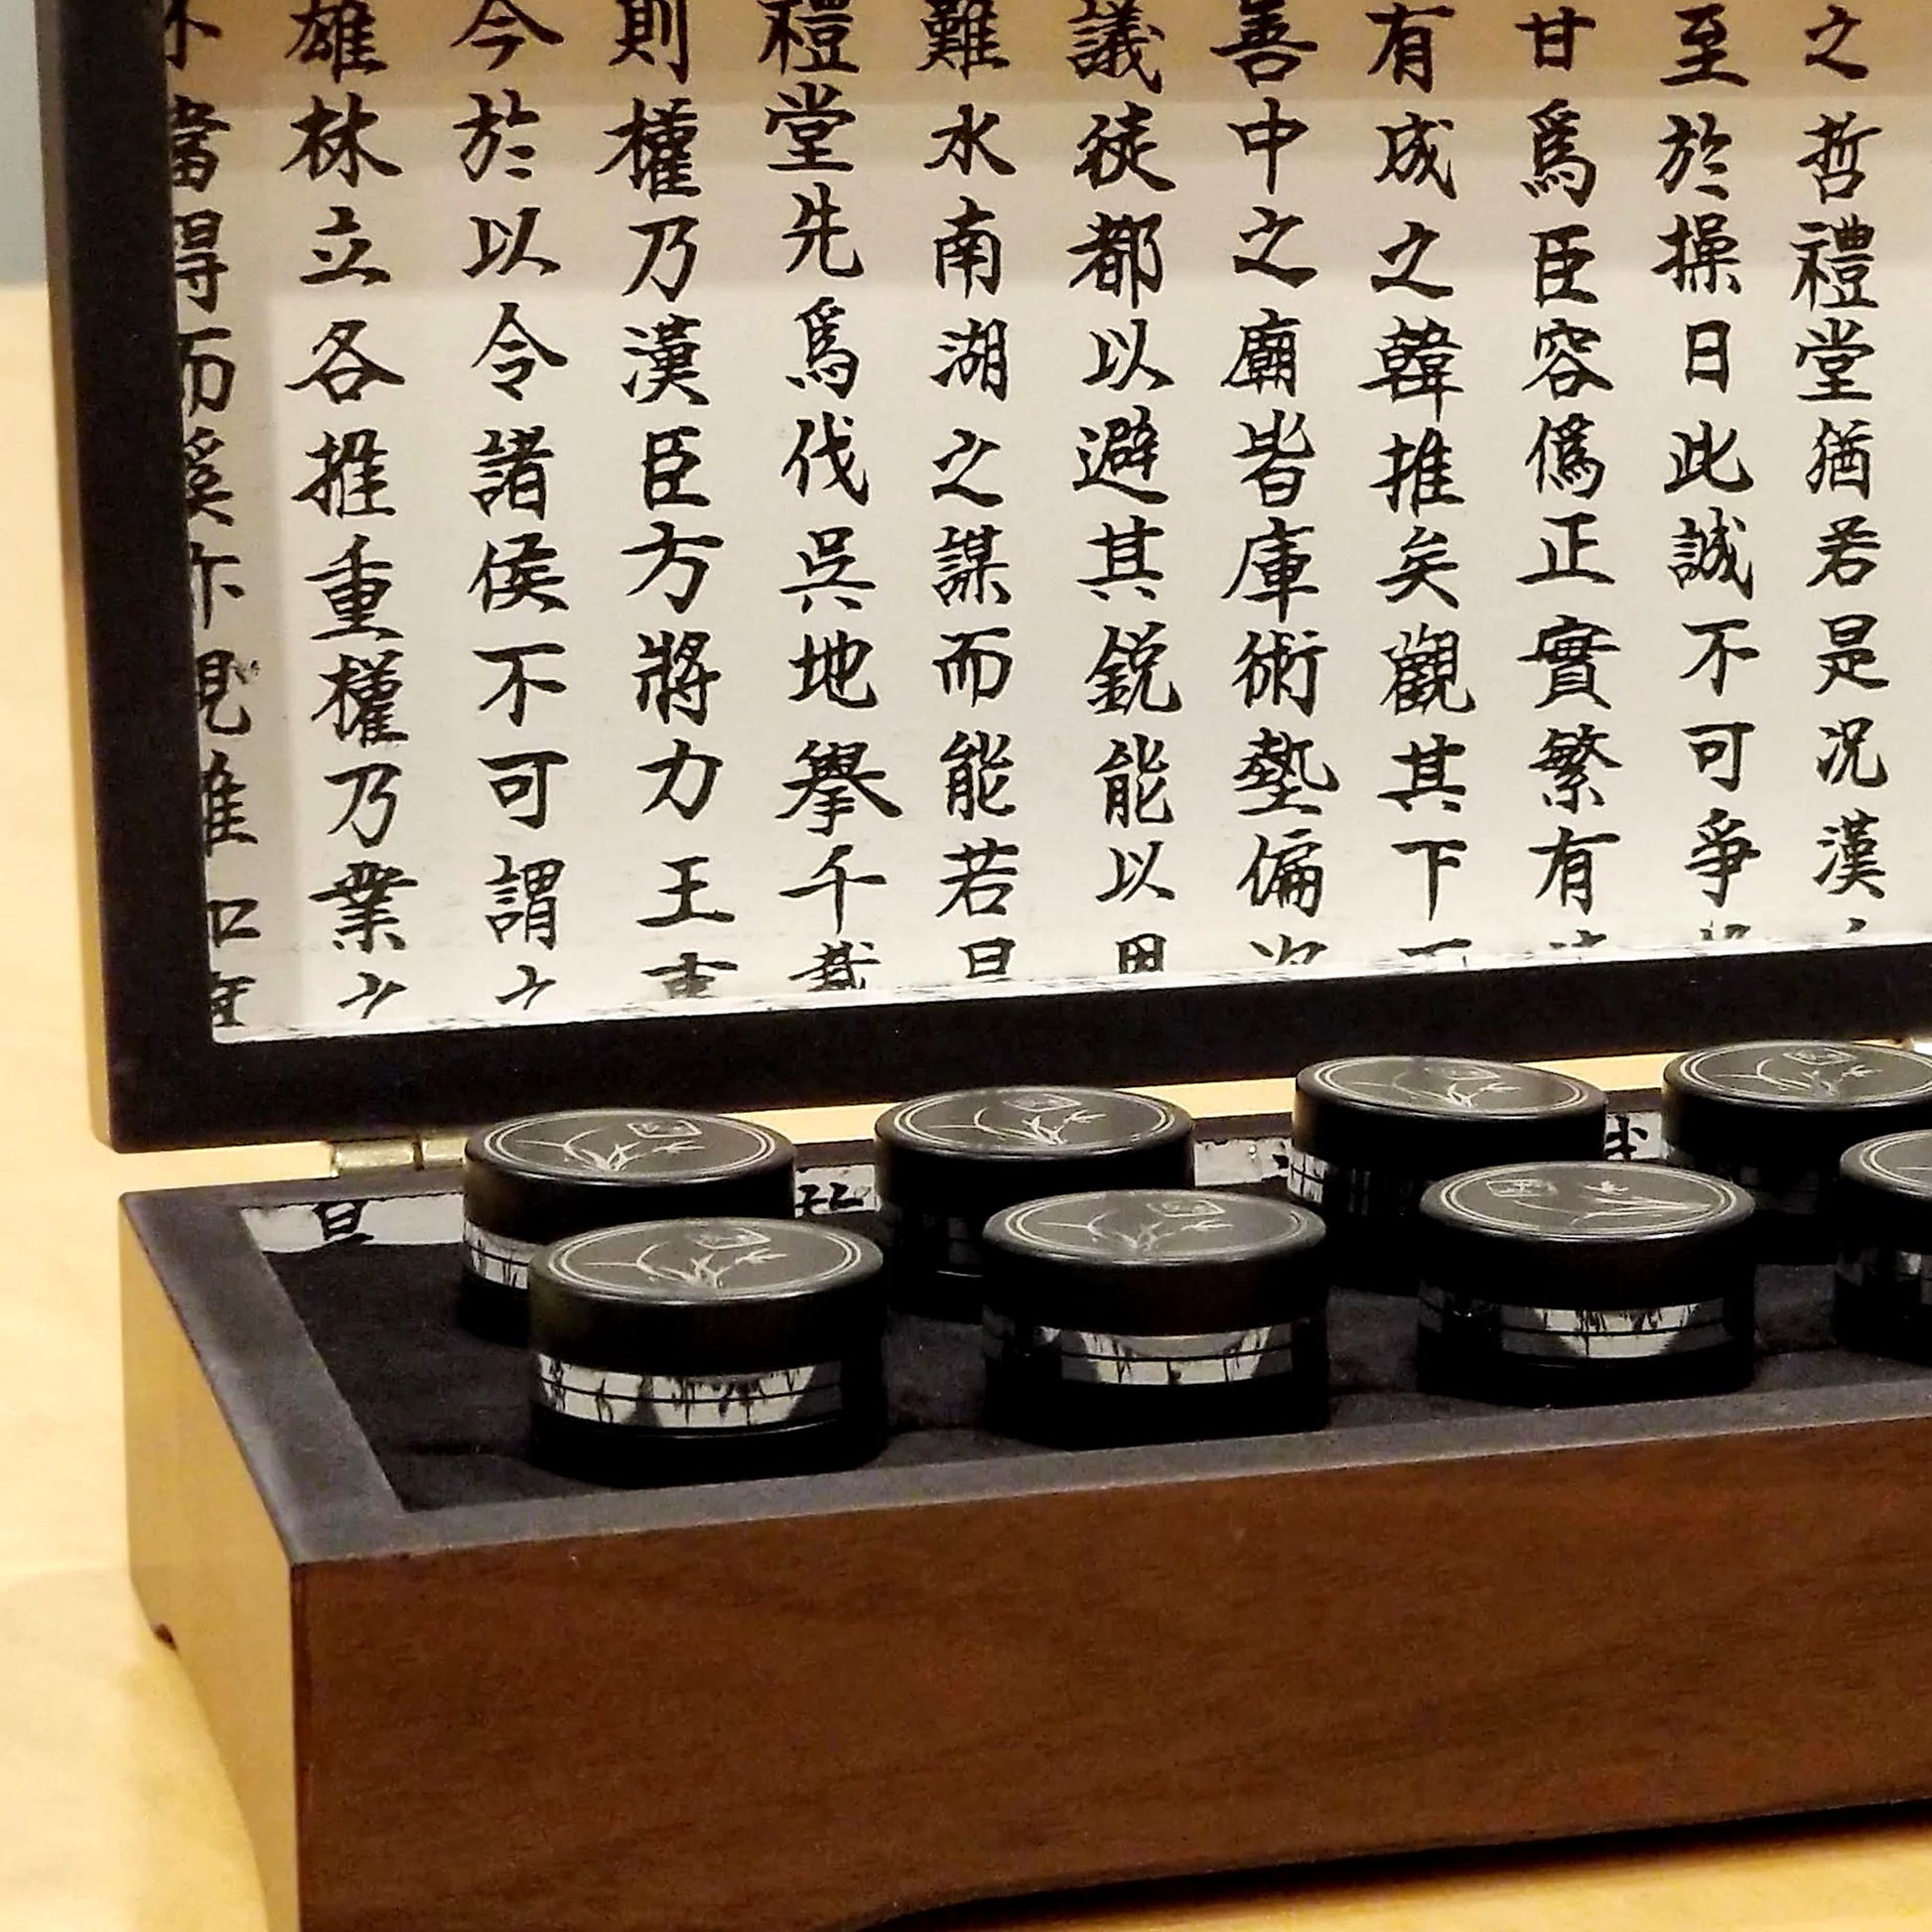 之哲禮堂猶若是况漢
至於操日此誠不可爭
甘爲臣容僞正實繁有
有成之韓推矣觀其下
善中之廟皆庫術藝偏次
議徒都以避其鋭能以
難水南湖之謀而能若
禮堂先爲伐吳地舉千
則權乃漢臣方將力王
今於以令諸侯不可謂之
雄林立各推重權乃業之
當得而亦